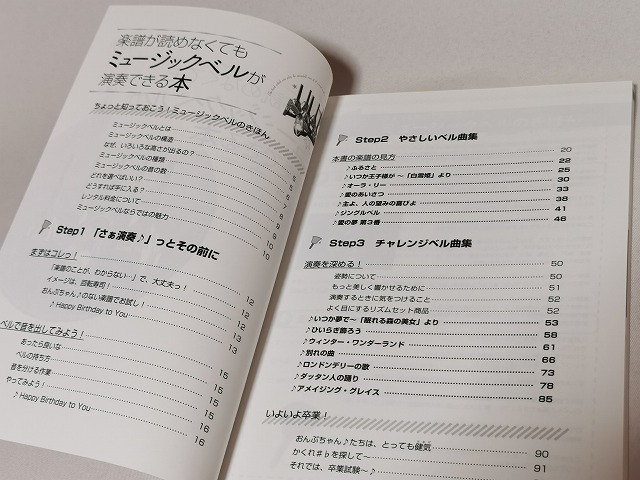 楽譜が読めなくても
ミュージックベルが
演奏できる本
ちょっと知っておこう！ミュージックベルのきほん
ミュージックベルとは
ミュージックベルの構造
なぜ、いろいろな高さが出るの？
ミュージックベルの種類
ミュージックベルの音の数
どれを選べばいい？
どうすれば手に入る？
レンタル料金について
ミュージックベルならではの魅力 10
Step1 「さぁ演奏♪」っとその前に
まずはコレっ！ 12
「楽譜のことが、わからない…」で、大丈夫っ！ 12
イメージは、回転寿司！ 12
おんぷちゃん♪のない楽譜でお試し！ 13
♪Happy Birthday to You 13
ベルで音を出してみよう！ 15
あったら良いな 15
ベルの持ち方 15
音を分ける作業 15
やってみよう！ 16
♪Happy Birthday to You 16
Step2 やさしいベル曲集
本書の楽譜の見方 20
♪ふるさと 22
♪いつか王子様が ～「白雪姫」より 25
♪オーラ・リー 30
♪愛のあいさつ 33
♪主よ、人の望みの喜びよ 38
♪ジングルベル 41
♪愛の夢 第３番 46
Step3 チャレンジベル曲集
演奏を深める！ 50
姿勢について 50
もっと美しく響かせるために 51
演奏するときに気をつけること 52
よく目にするリズムセット商品 52
♪いつか夢で～「眠れる森の美女」より 53
♪ひいらぎ飾ろう 58
♪ウィンター・ワンダーランド 61
♪別れの曲 66
♪ロンドンデリーの歌 73
♪ダッタン人の踊り 78
♪アメイジング・グレイス 85
いよいよ卒業！
おんぷちゃん♪たちは、とっても健気 90
かくれ♯♭を探して～ 91
それでは、卒業試験～♪